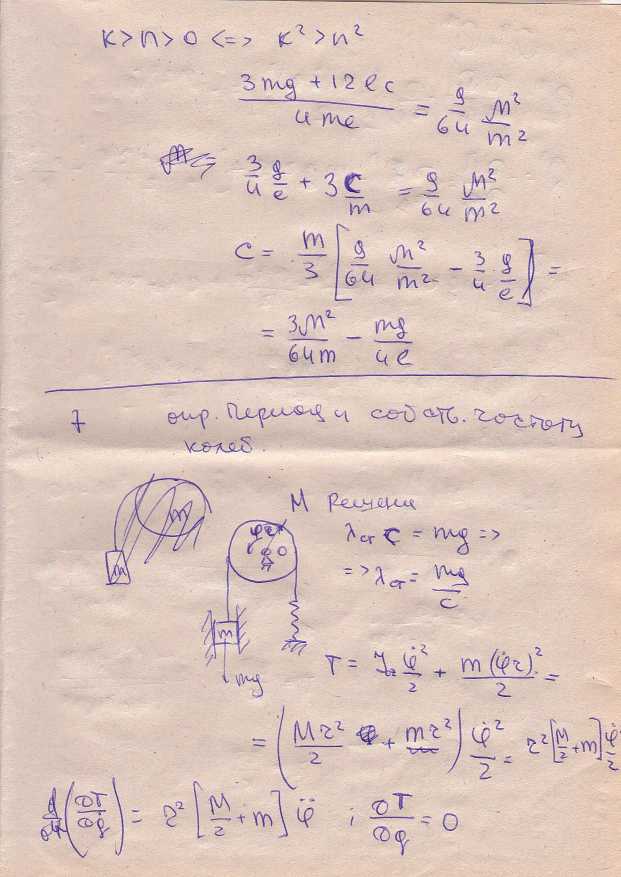 K > n > 0 <=> K² > n²
(3mg + 12lc)/(4ml) = 9/64 M²/m²
3/4 g/l + 3 c/m = 9/64 M²/m²
c = m/3 [9/64 M²/m² - 3/4 g/l] =
= 3M²/64m - mg/4l
7 опр. период и собств. частоту
колеб.
m
m
M Решени
φ r
O
m
mg
λст c = mg =>
=> λст = mg/c
T = Jz φ̇²/2 + m(φ̇r)²/2 =
= (Mr²/2 + mr²) φ̇²/2 = r² [M/2 + m] φ̇²/2
d/dt (∂T/∂q̇) = r² [M/2 + m] φ̈ ; ∂T/∂q = 0